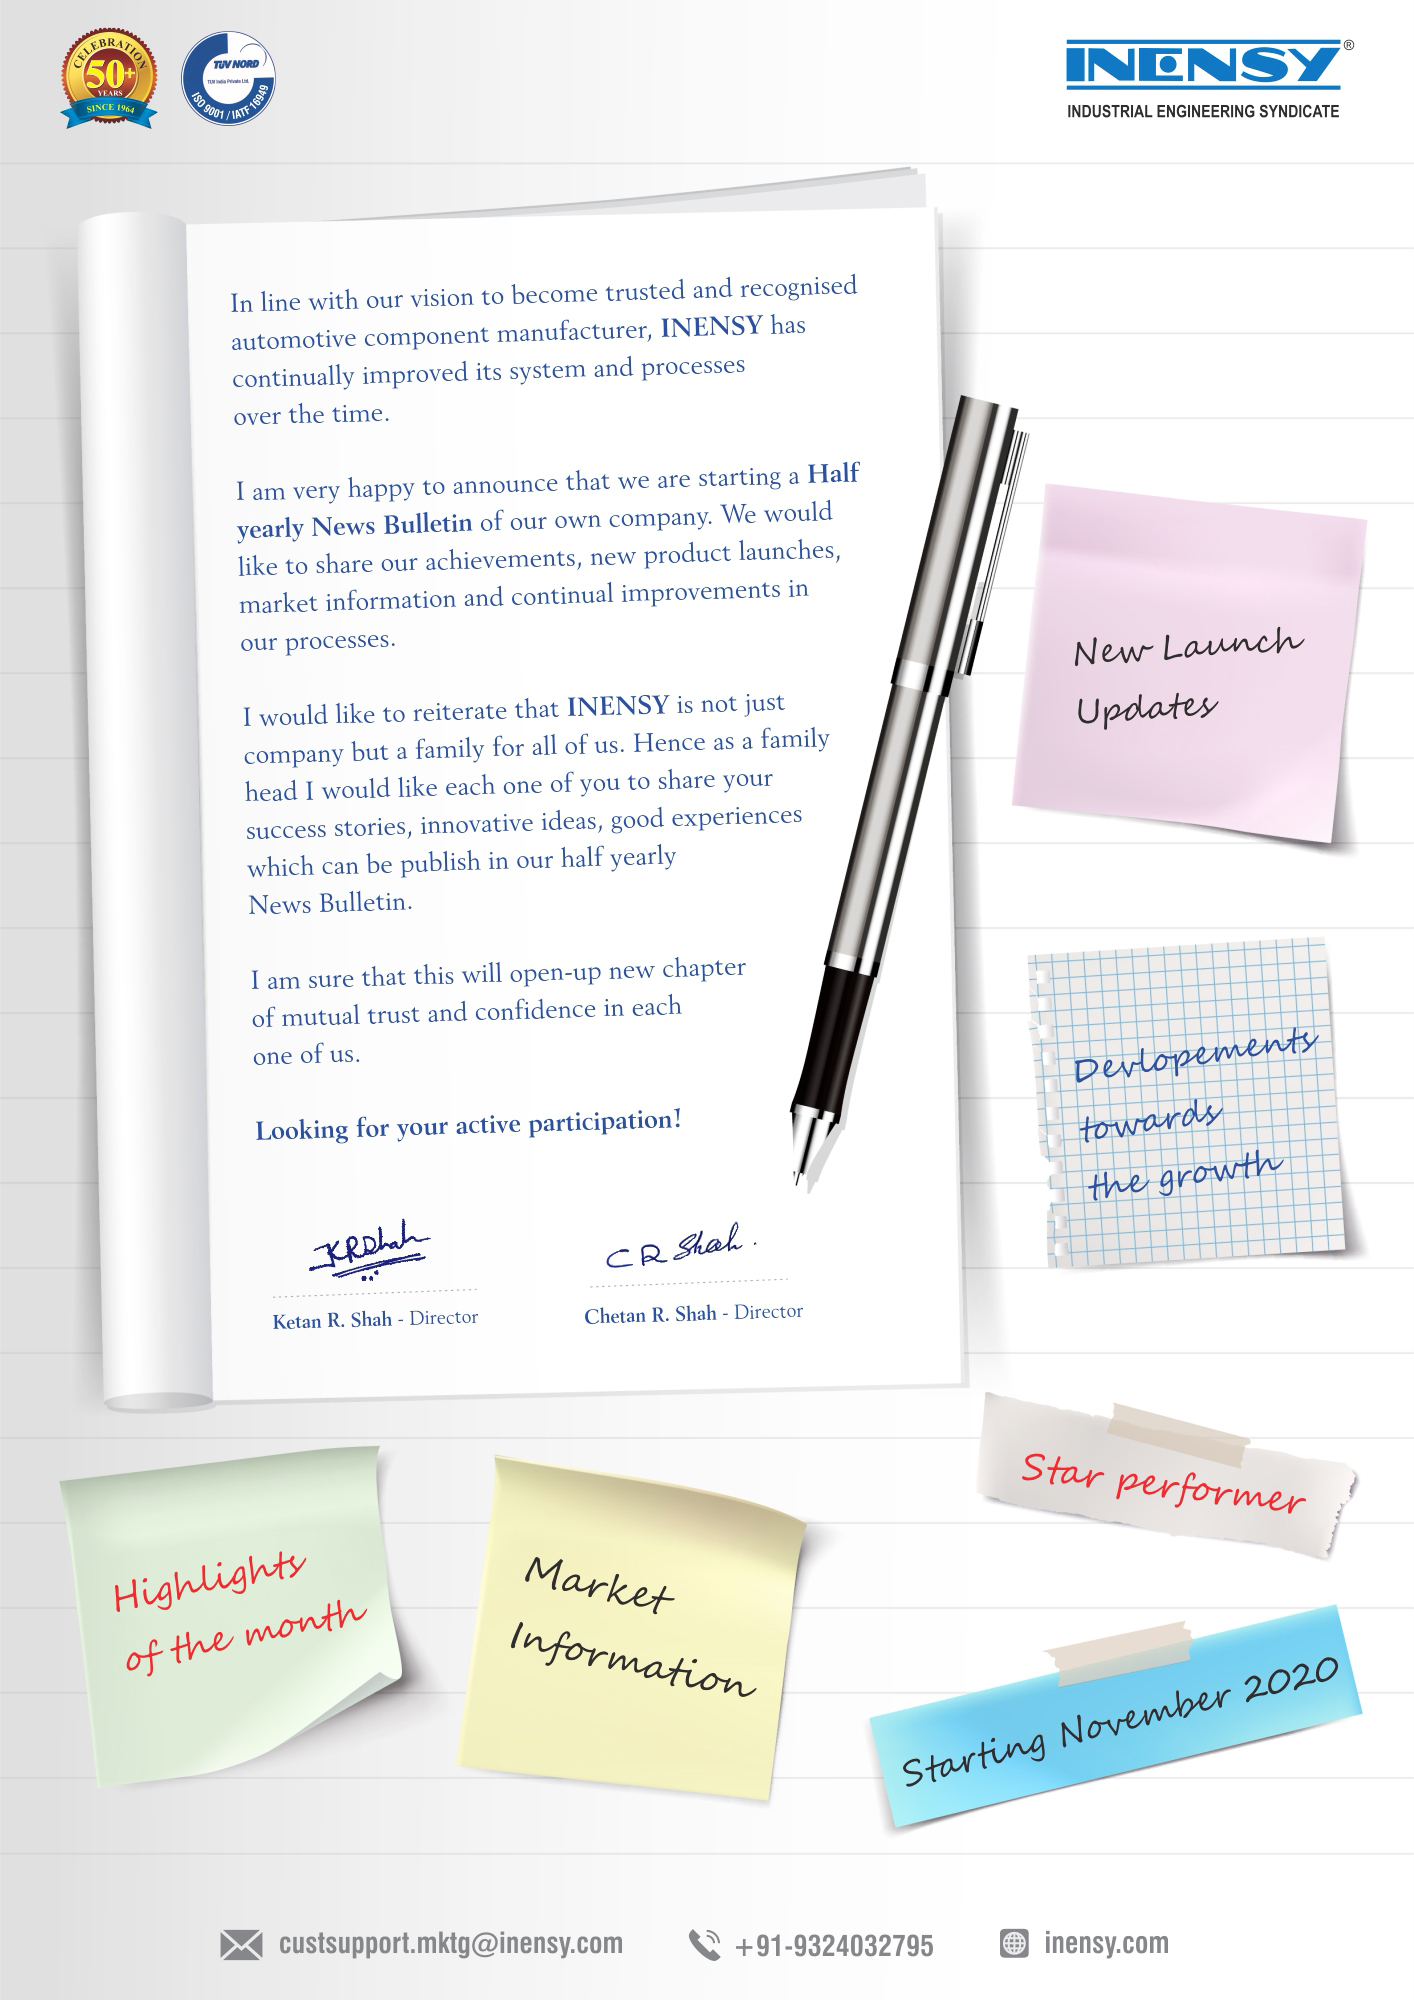 CELEBRATION
50+
YEARS
SINCE 1964
TUV NORD
TUV India Private Ltd.
ISO 9001 / IATF 16949
INENSY®
INDUSTRIAL ENGINEERING SYNDICATE
In line with our vision to become trusted and recognised
automotive component manufacturer, INENSY has
continually improved its system and processes
over the time.
I am very happy to announce that we are starting a Half
yearly News Bulletin of our own company. We would
like to share our achievements, new product launches,
market information and continual improvements in
our processes.
I would like to reiterate that INENSY is not just
company but a family for all of us. Hence as a family
head I would like each one of you to share your
success stories, innovative ideas, good experiences
which can be publish in our half yearly
News Bulletin.
I am sure that this will open-up new chapter
of mutual trust and confidence in each
one of us.
Looking for your active participation!
KRShah
C R Shah.
Ketan R. Shah - Director
Chetan R. Shah - Director
New Launch
Updates
Devlopements
towards
the growth
Star performer
Highlights
of the month
Market
Information
Starting November 2020
custsupport.mktg@inensy.com
+91-9324032795
inensy.com